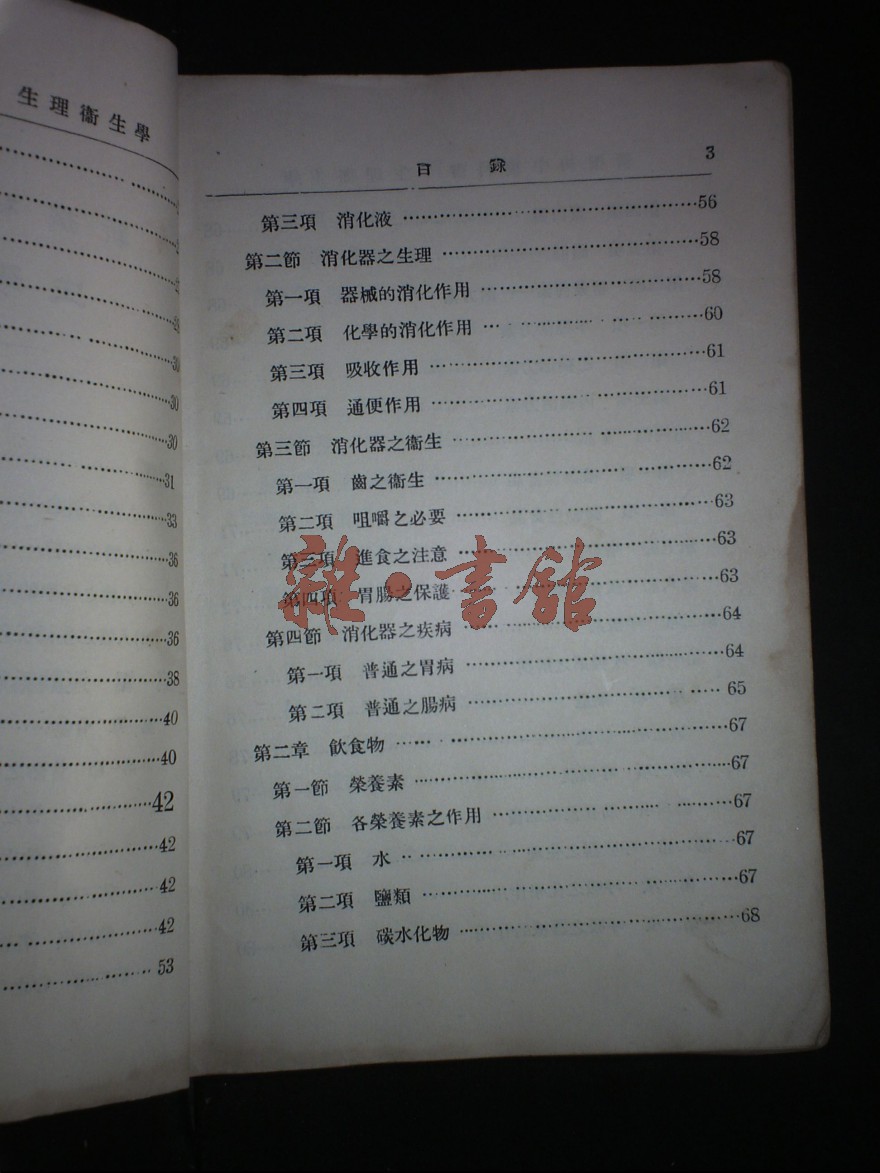 生理衞生學
30
30
30
31
33
36
36
36
38
40
40
42
42
42
42
53
目錄 3
第三項 消化液 56
第二節 消化器之生理 58
第一項 器械的消化作用 58
第二項 化學的消化作用 60
第三項 吸收作用 61
第四項 通便作用 61
第三節 消化器之衞生 62
第一項 齒之衞生 62
第二項 咀嚼之必要 63
第三項 進食之注意 63
第四項 胃腸之保護 63
第四節 消化器之疾病 64
第一項 普通之胃病 64
第二項 普通之腸病 65
第二章 飲食物 67
第一節 榮養素 67
第二節 各榮養素之作用 67
第一項 水 67
第二項 鹽類 67
第三項 碳水化物 68
雜·書館